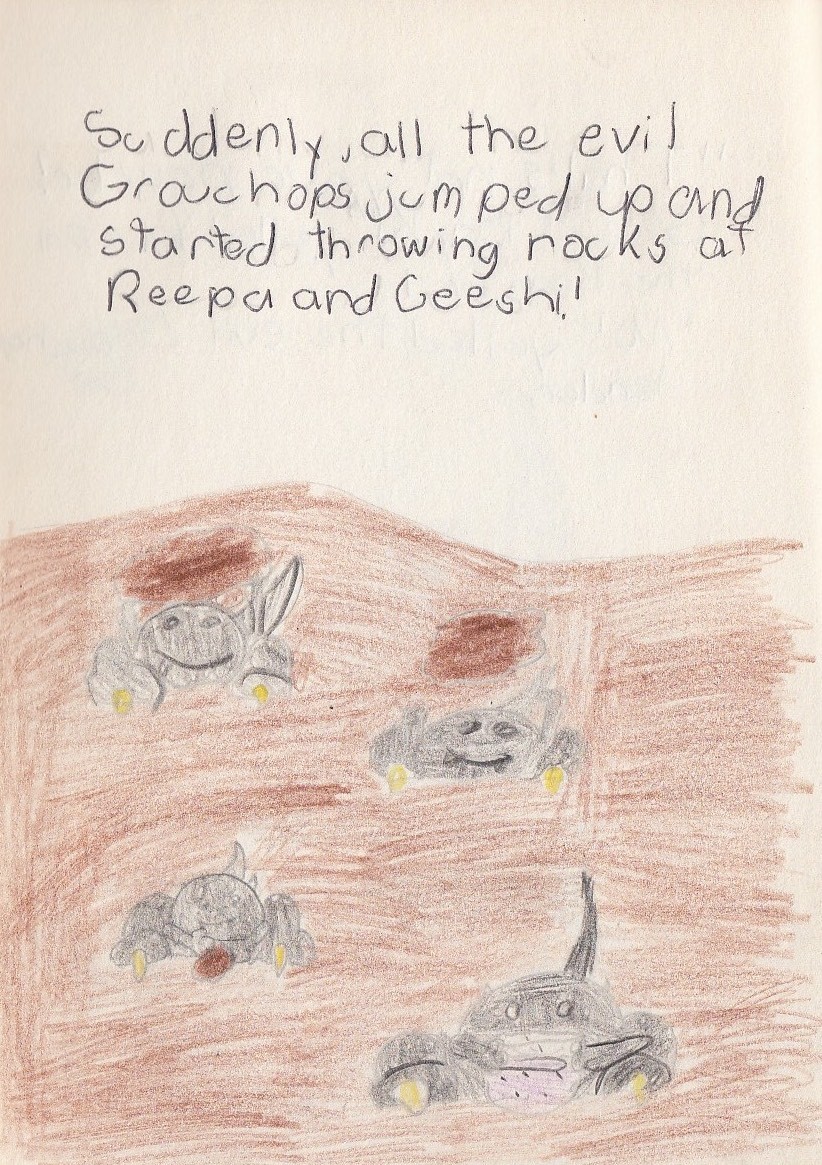 Suddenly, all the evil
Grouchops jumped up and
started throwing rocks at
Reepa and Geeshi!